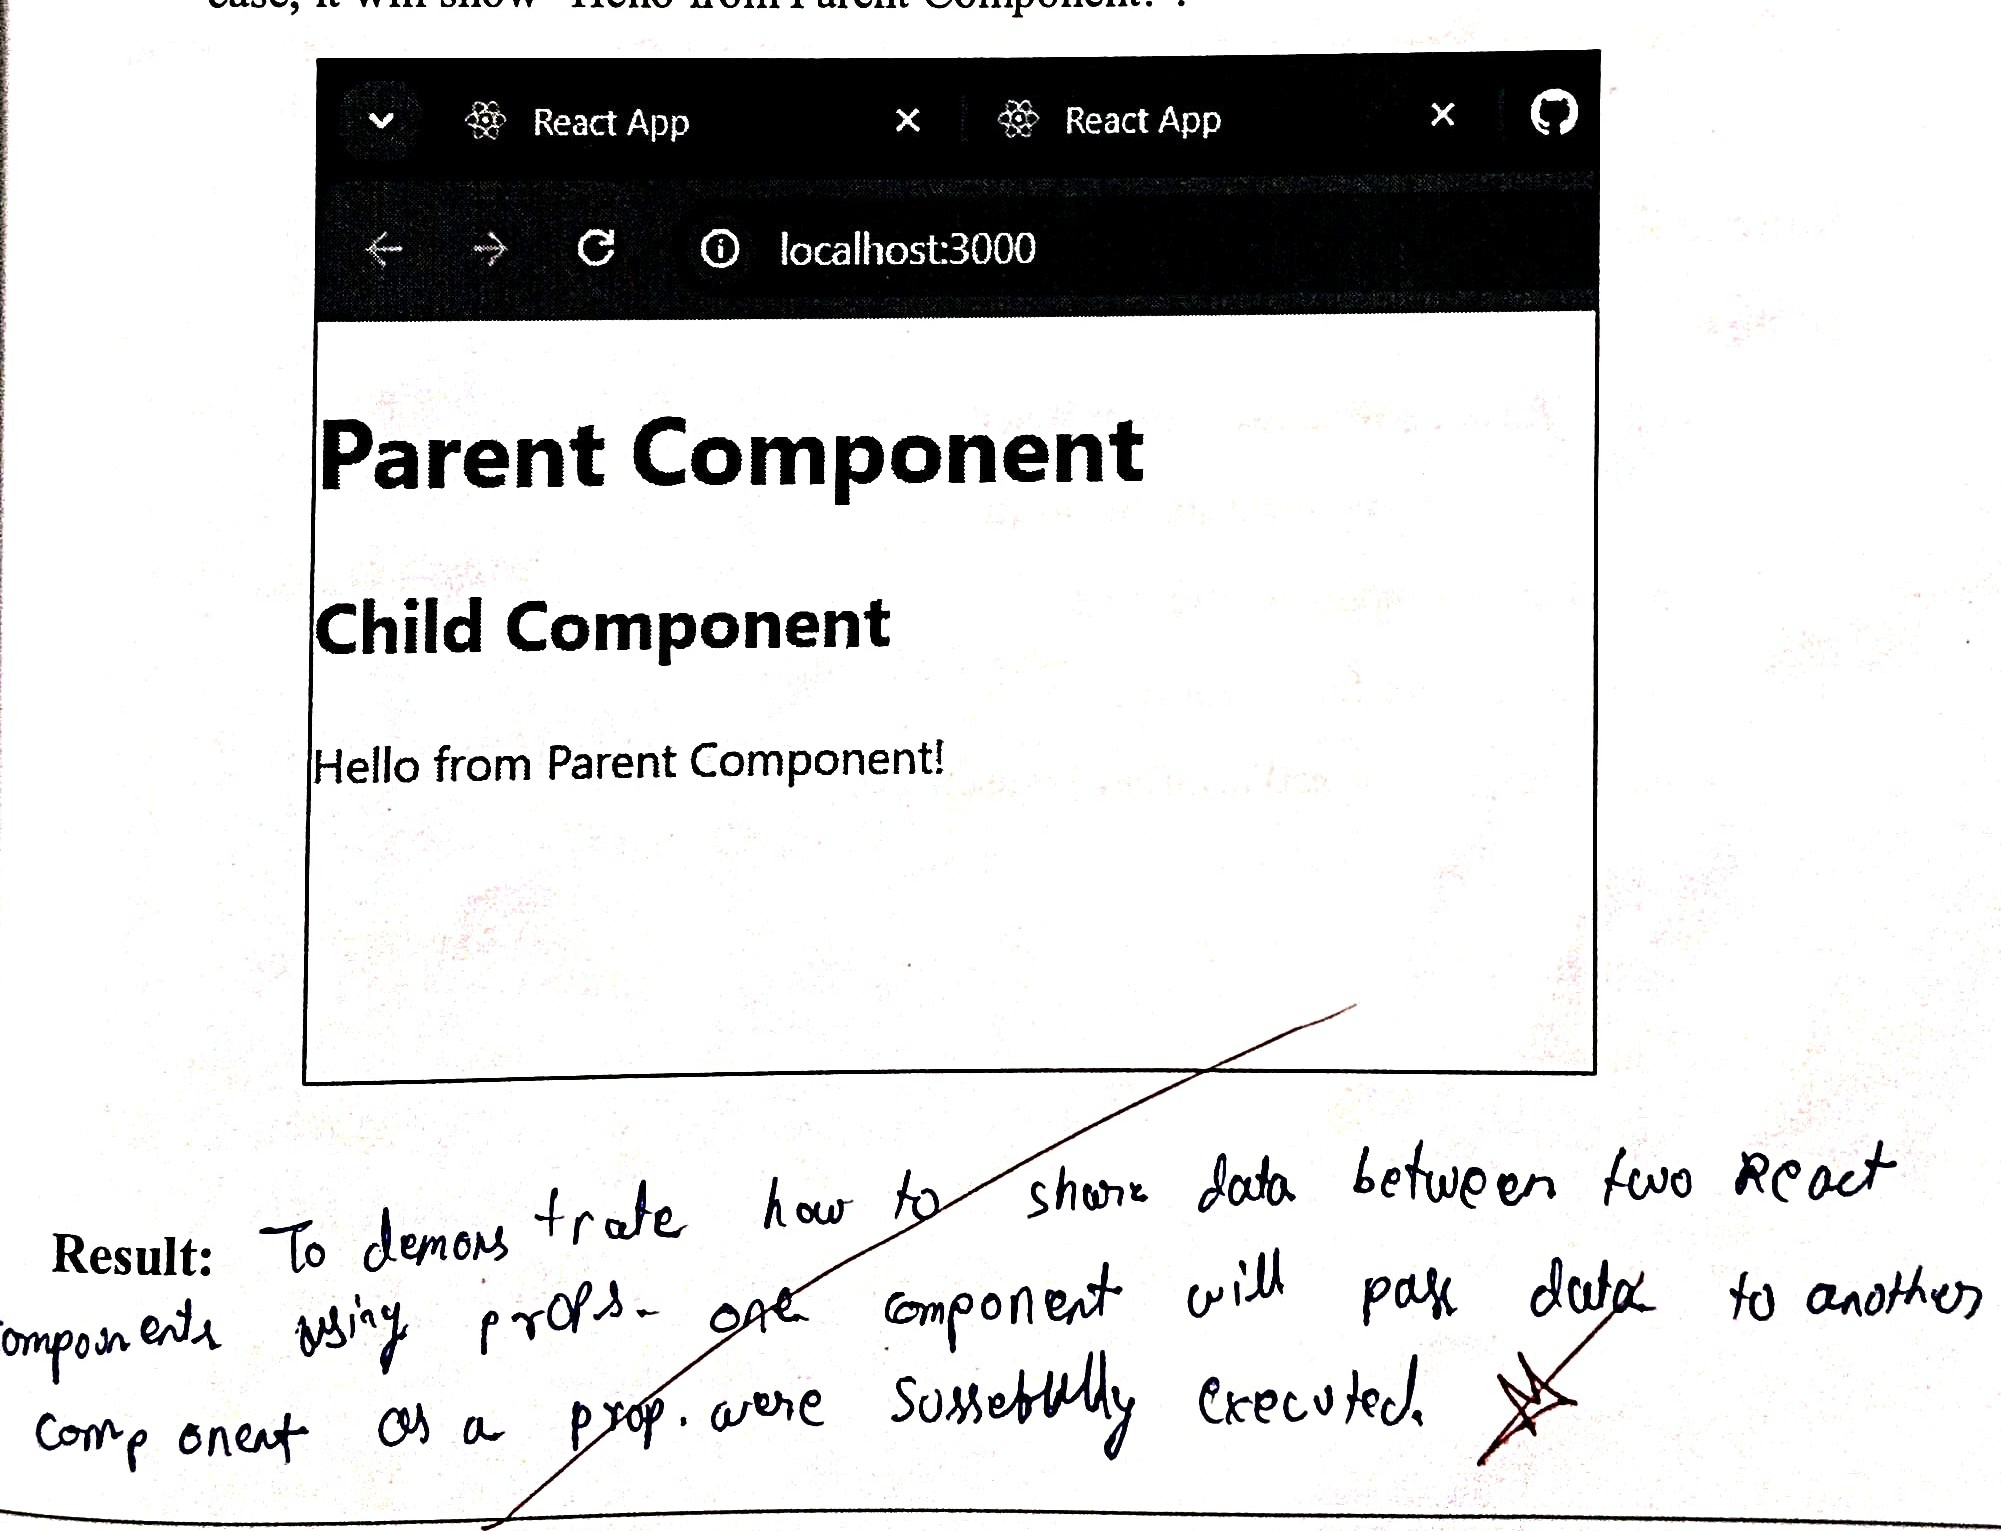 case, it will show "Hello from Parent Component!".
React App React App
localhost:3000
Parent Component
Child Component
Hello from Parent Component!
Result: To demonstrate how to share data between two React
omponents using props. one component will pass data to another
component as a prop. were Sussebully executed.